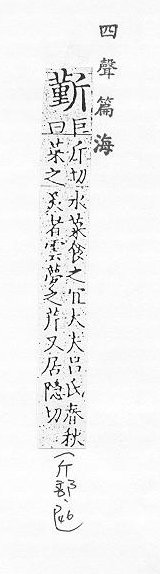 四聲篇海
斳
巨斤切水菜食之宜大夫呂氏春秋
曰菜之美者雲夢之芹又居隐切
(斤部、P46)